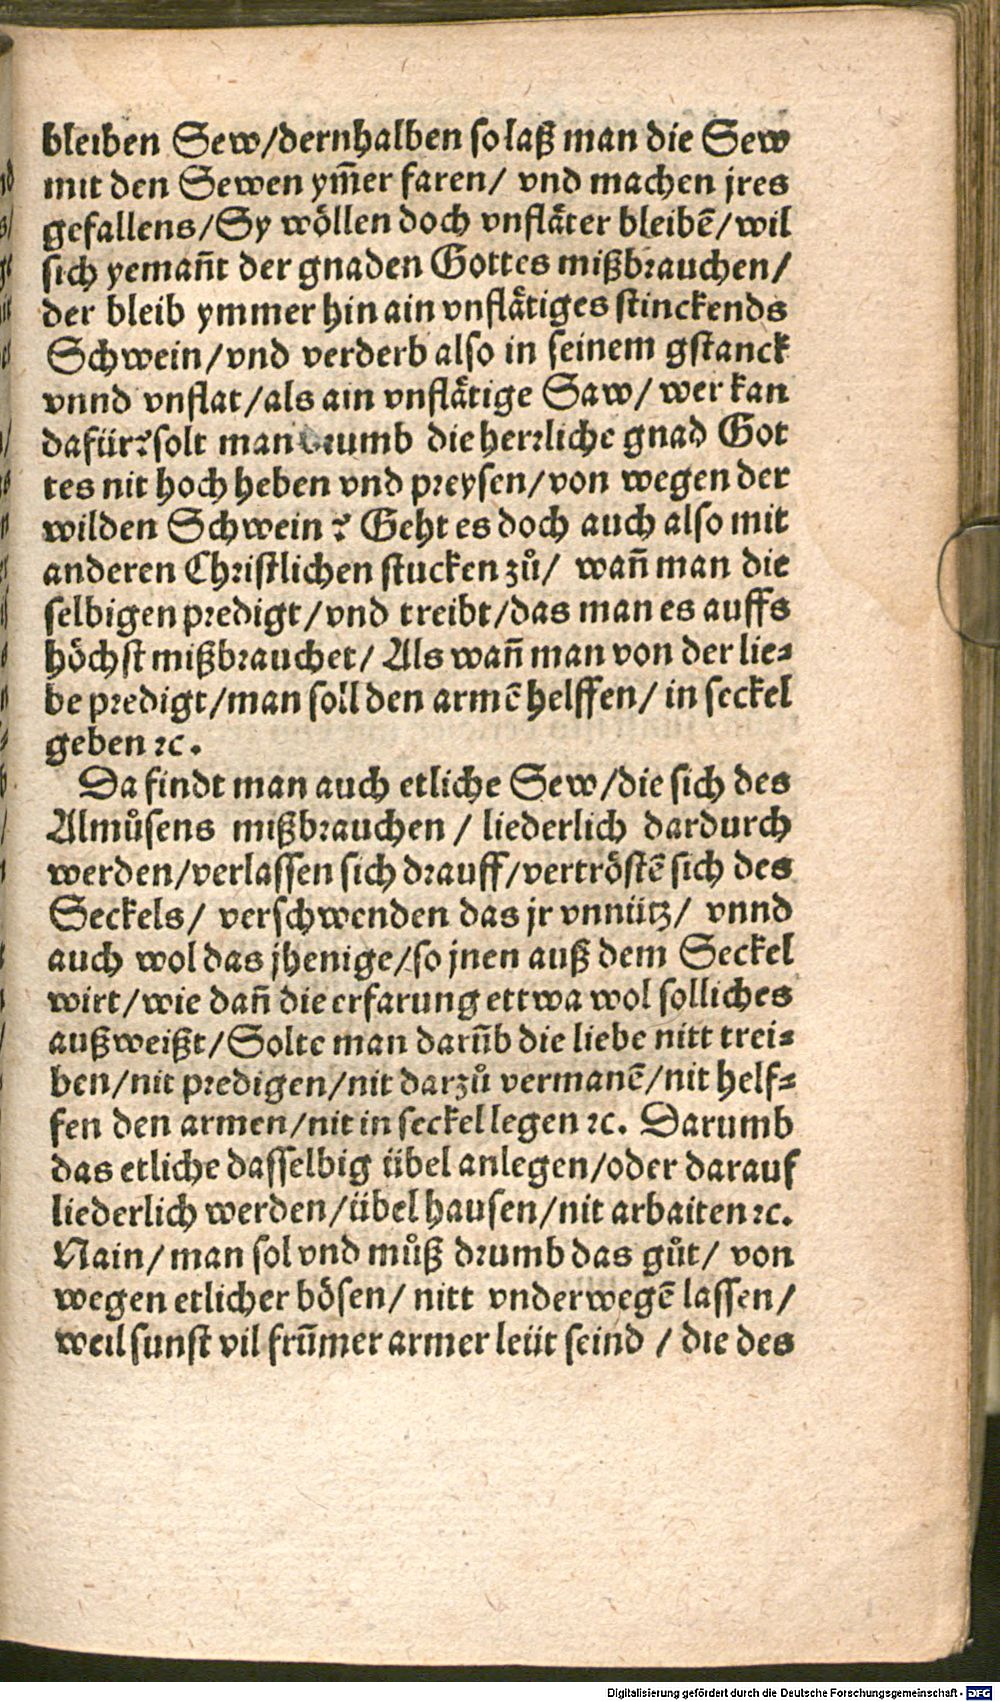 bleiben Sew/dernhalben so laß man die Sew
mit den Sewen ym̃er faren/ vnd machen jres
gefallens/Sy wöllen doch vnflåter bleibẽ/wil
sich yemañt der gnaden Gottes mißbrauchen/
der bleib ymmer hin ain vnflåtiges stinckends
Schwein/vnd verderb also in seinem gstanck
vnnd vnflat/als ain vnflåtige Saw/ wer kan
dafür?solt man drumb die herrliche gnad Got
tes nit hoch heben vnd preysen/von wegen der
wilden Schwein? Geht es doch auch also mit
anderen Christlichen stucken zů/ wañ man die
selbigen predigt/vnd treibt/das man es auffs
höchst mißbrauchet/ Als wañ man von der lie⸗
be predigt/man soll den armẽ helffen/ in seckel
geben ꝛc.
Da findt man auch etliche Sew/die sich des
Almůsens mißbrauchen/ liederlich dardurch
werden/verlassen sich drauff/vertröstẽ sich des
Seckels/ verschwenden das jr vnnütz/ vnnd
auch wol das jhenige/so jnen auß dem Seckel
wirt/wie dañ die erfarung ettwa wol solliches
außweißt/Solte man darũb die liebe nitt trei⸗
ben/nit predigen/nit darzů vermanẽ/nit helf⸗
fen den armen/nit in seckel legen ꝛc. Darumb
das etliche dasselbig übel anlegen/oder darauf
liederlich werden/übel hausen/nit arbaiten ꝛc.
Nain/man sol vnd můß drumb das gůt/ von
wegen etlicher bösen/ nitt vnderwegẽ lassen/
weil sunst vil frũmer armer leüt seind/ die des
Digitalisierung gefördert durch die Deutsche Forschungsgemeinschaft - DFG